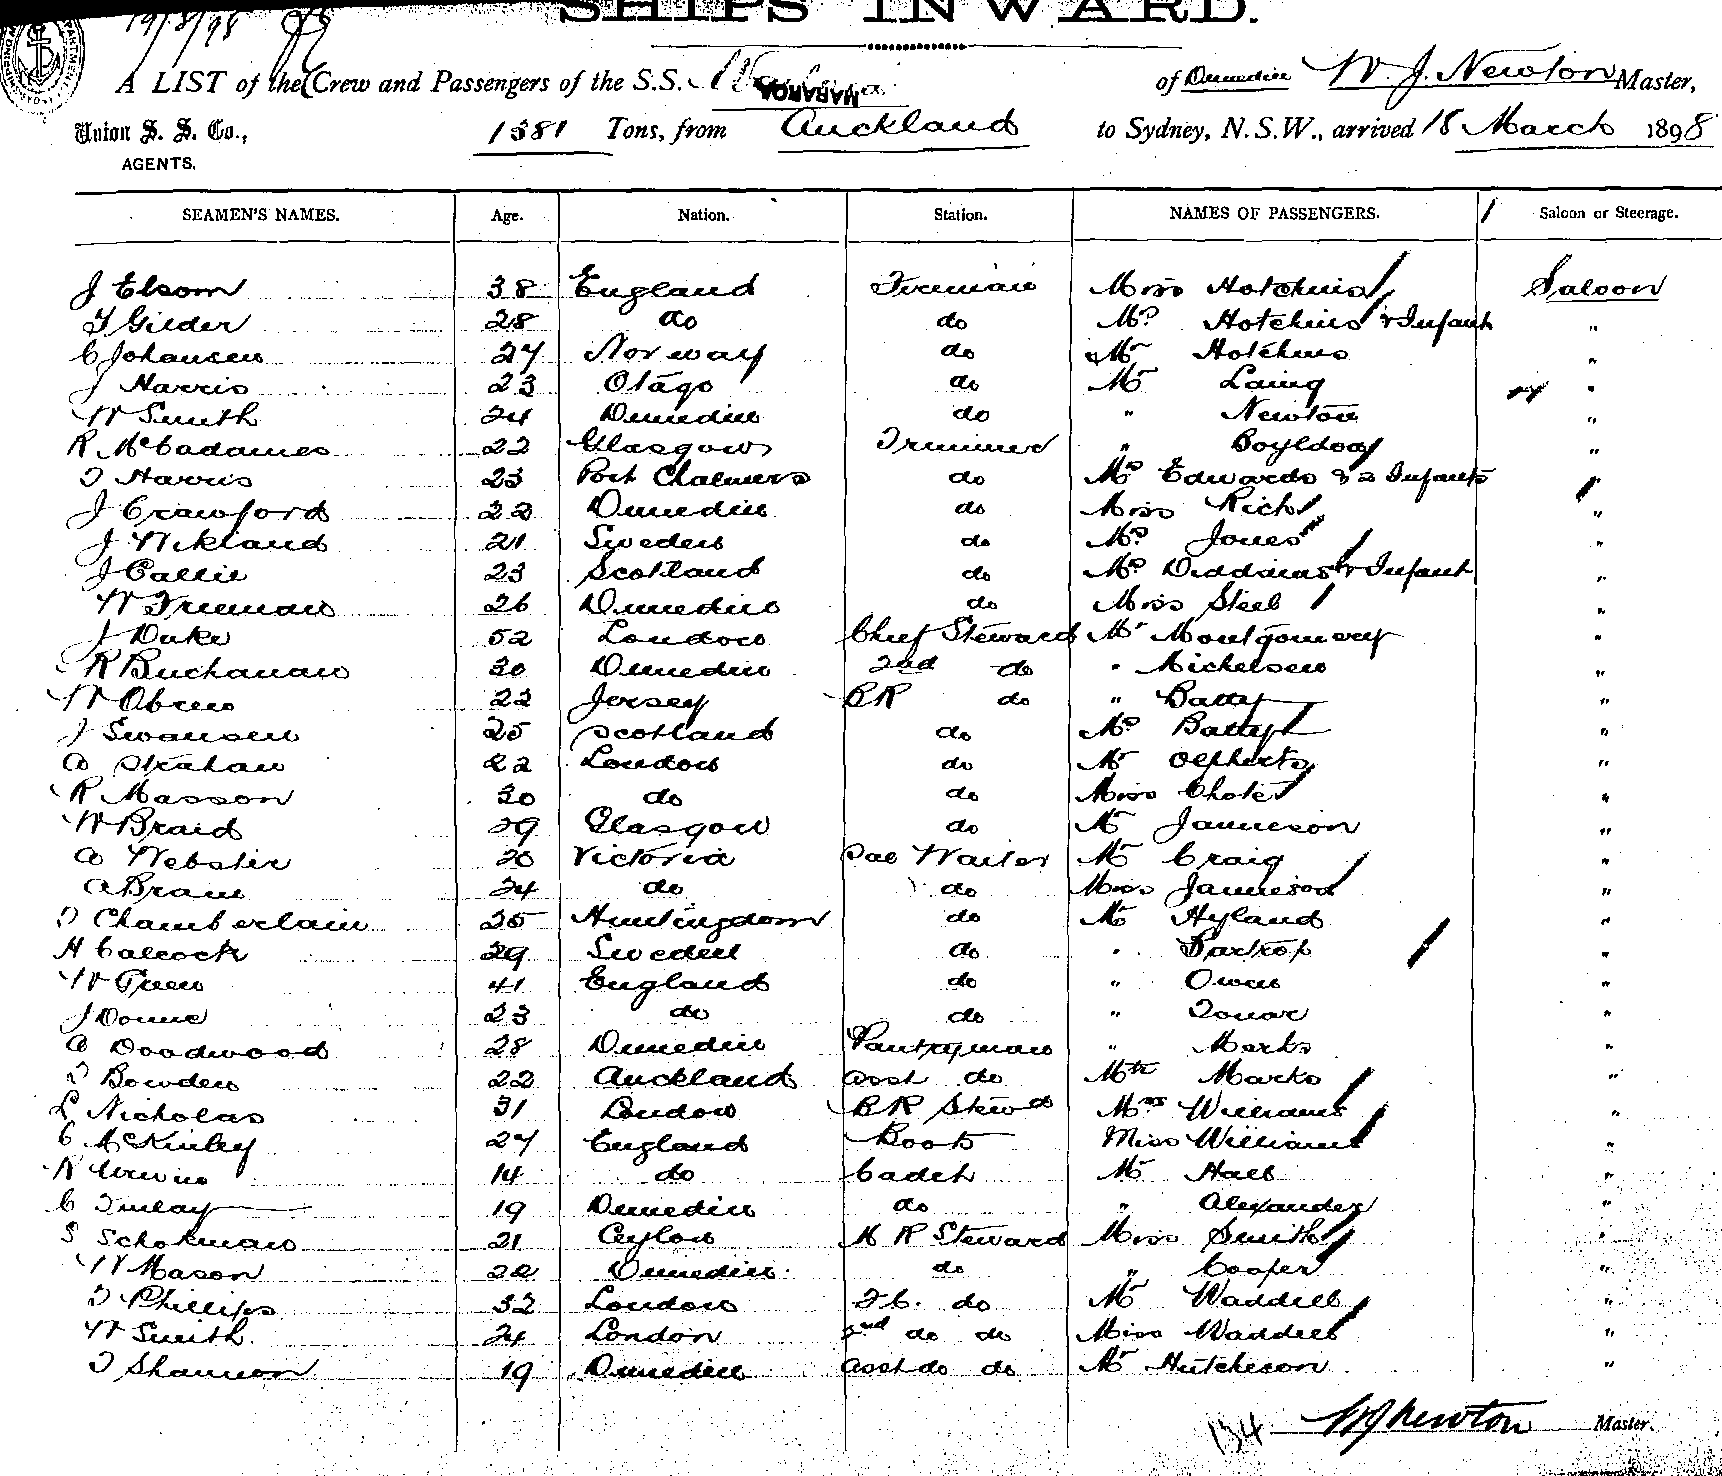 19/8/98
SHIPS INWARD.
A LIST of the Crew and Passengers of the S.S. MARAROA of Dunedin W. J. Newton Master,
Union S. S. Co., 1381 Tons, from Auckland to Sydney, N.S.W., arrived 18 March 1898
AGENTS.
SEAMEN'S NAMES. Age. Nation. Station. NAMES OF PASSENGERS. Saloon or Steerage.
J Elsom 38 England Fireman Miss Hotchins Saloon
T Gilder 28 do do Mrs Hotchins & Infant "
C Johansen 27 Norway do Mr Hotchins "
J Harris 23 Otago do Mr Laing "
W Smith 24 Dunedin do " Newton "
R McCadames 22 Glasgow Trimmer " "
T Harris 23 Port Chalmers do Mrs Edwards & 2 Infants "
J Crawford 22 Dunedin do Miss Rich "
J Wikland 21 Sweden do Mrs Jones "
J Callie 23 Scotland do Mrs Diddams & Infant "
W Freeman 26 Dunedin do Miss Steel "
J Duke 52 London Chief Steward Mr Montgomery "
R Buchanan 30 Dunedin 2nd do " Michelsen "
W 22 Jersey BR do " Batty "
J Swansen 25 Scotland do Mrs Batty "
A Strahan 22 London do Mr Olpherts "
R Masson 30 do do Miss "
W Braid 29 Glasgow do Mr Jamieson "
A Webster 20 Victoria Sal Waiter Mr Craig "
A Bram 24 do do Miss Jamieson "
T Chamberlain 25 Huntingdom do Mr Hyland "
H Calcock 29 Sweden do " Bartrop "
W Green 41 England do " Owen "
J Donne 23 do do " "
A Doodwood 28 Dunedin Pantryman " Marks "
T Bowden 22 Auckland asst do Mstr Marks "
L Nicholas 31 London BR Stewd Mrs Williams "
C McKinley 27 England Boots Miss Williams "
N Urwin 14 do Cadet Mr Hall "
C Finlay 19 Dunedin do " Alexander "
S Schokman 21 Ceylon M R Steward Miss Smith "
W Mason 22 Dunedin do " Cooper "
T Phillips 32 London F.C. do Mr Waddell "
W Smith 24 London 2nd do do Miss Waddell "
T Shannon 19 Dunedin asst do do Mr Hutcheson "
134 W J Newton Master.